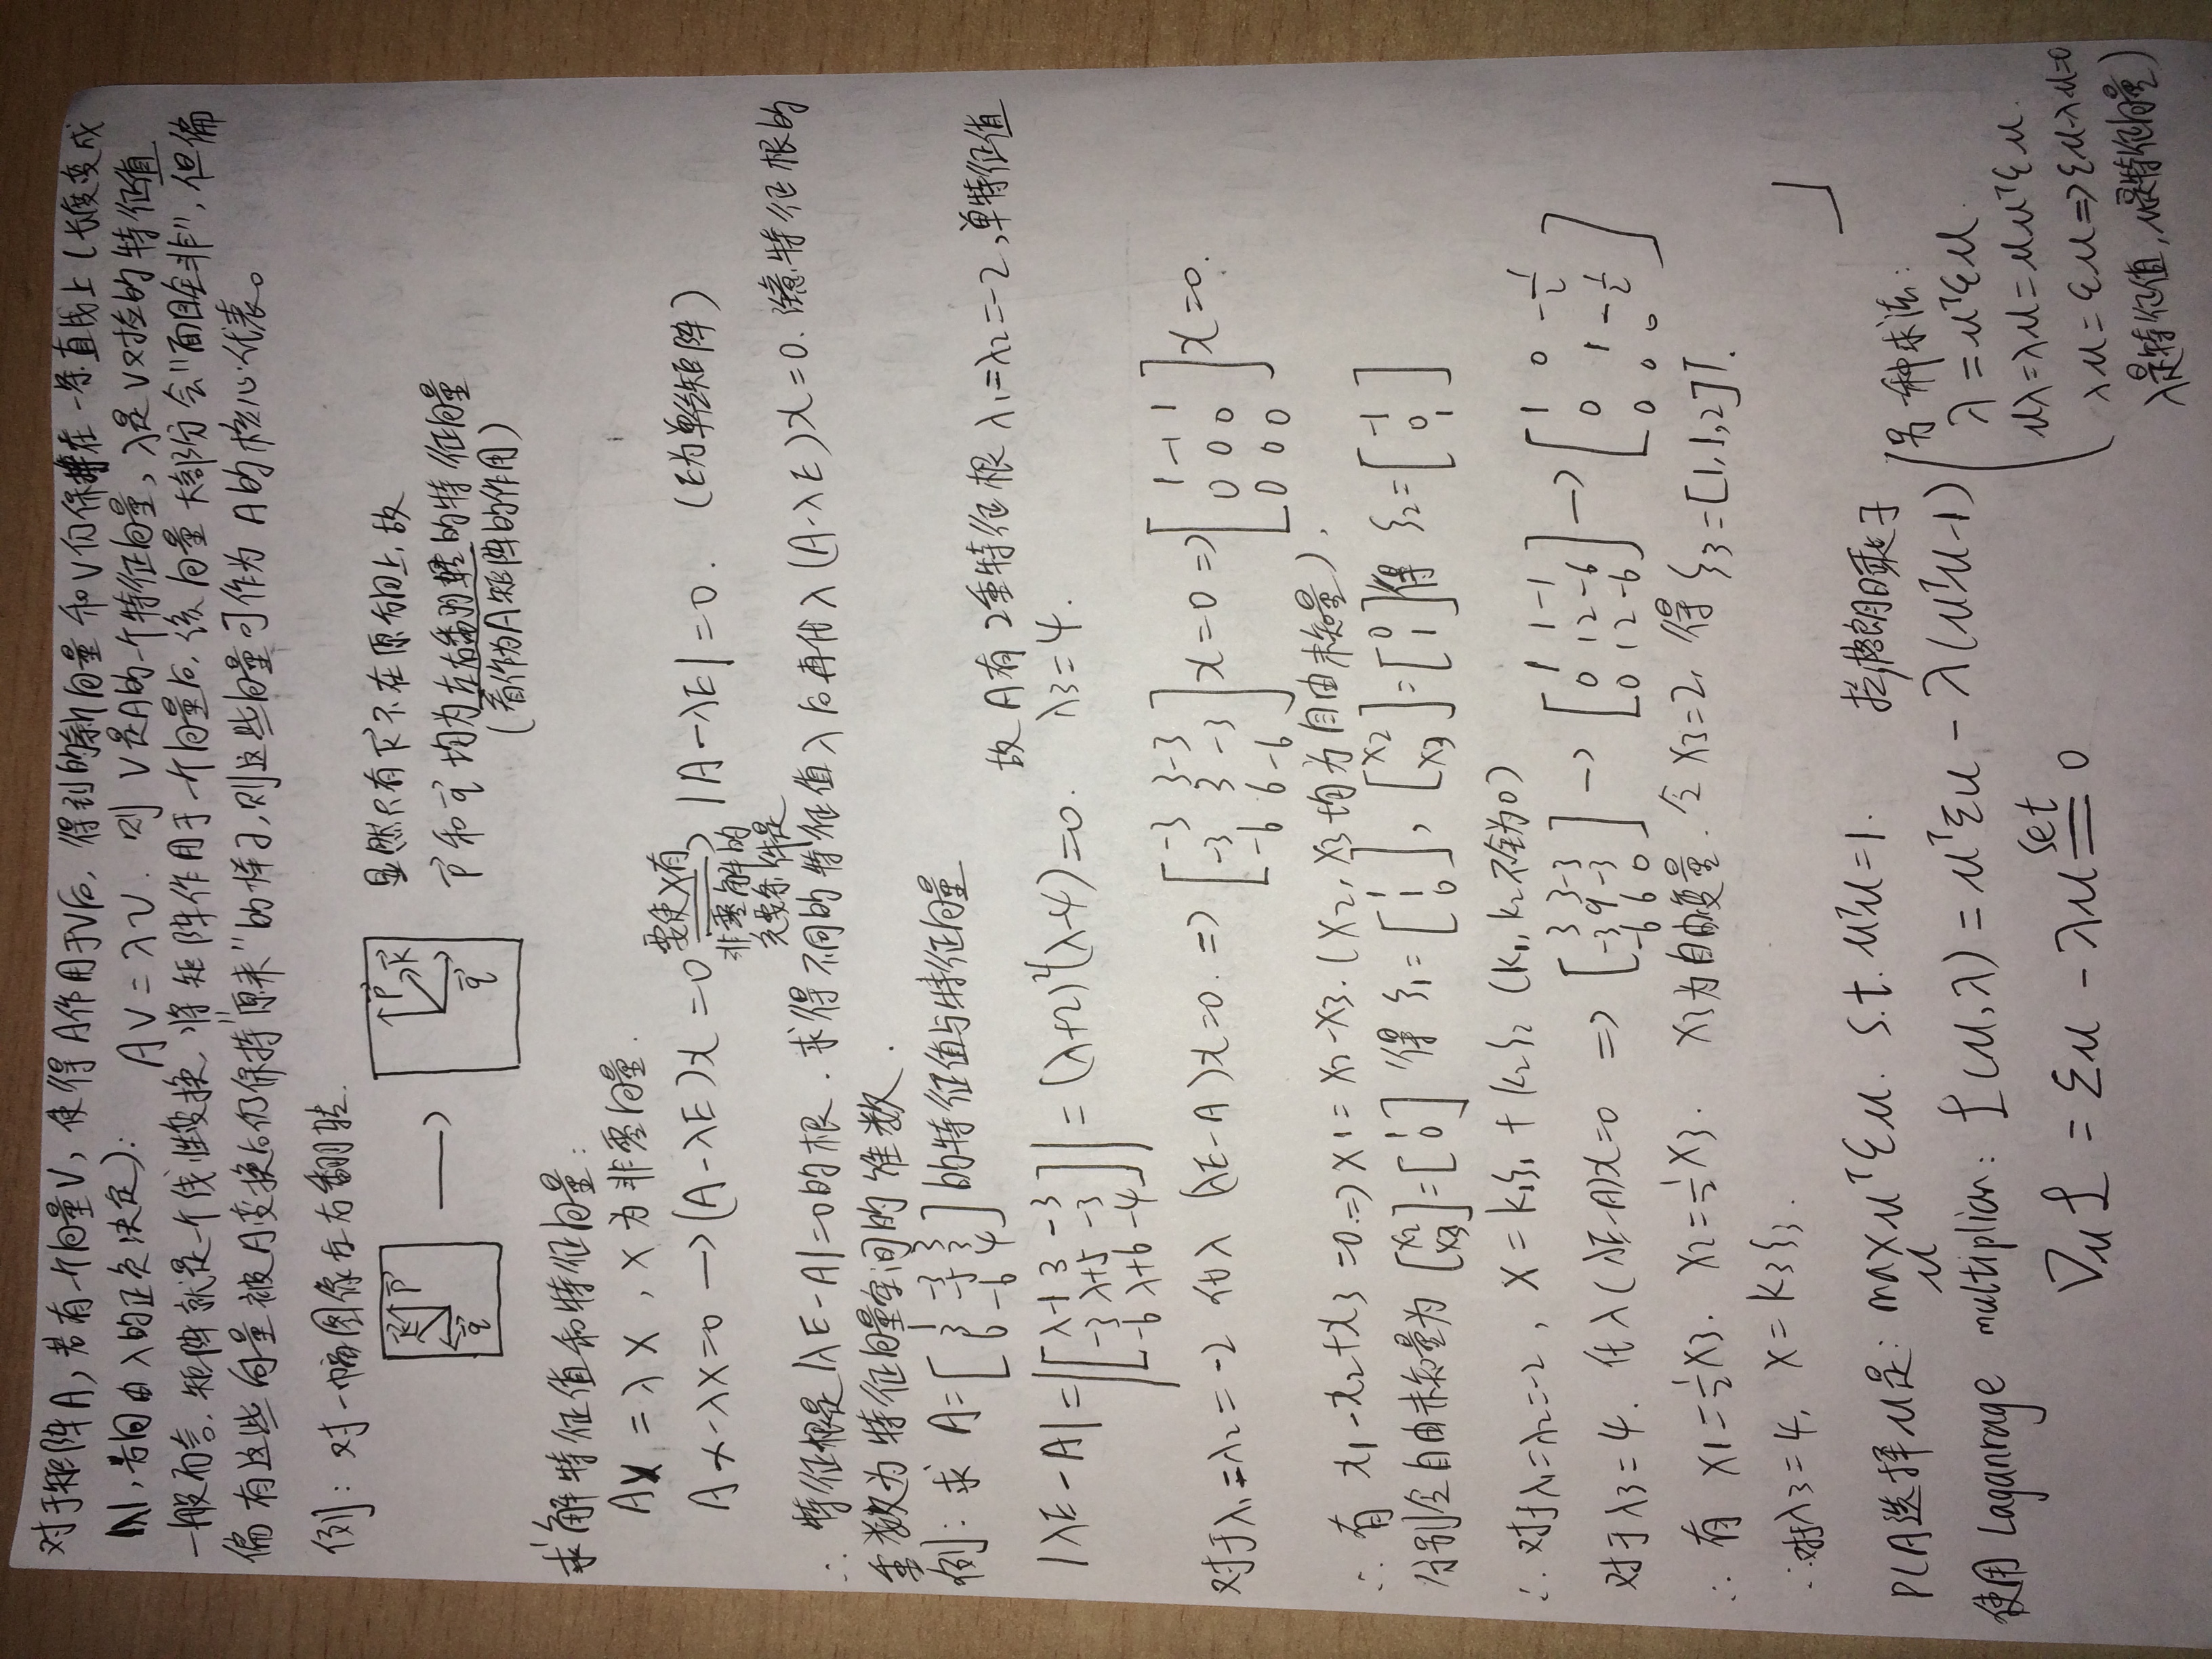 对于矩阵A,若有一个向量V,使得A作用于V后,得到的新向量和V仍保持在一条直线上(长度变成
|λ|,方向由λ的正负决定): AV=λV. 则V是A的一个特征向量,λ是V对应的特征值
一般而言.矩阵就是一个线性变换,将矩阵作用于一个向量后,该向量大部分会"面目全非",但偏
偏有这些向量被A变换后仍保持"原来"的样子,则这些向量可作为A的核心代表。
例:对一幅图像左右翻转.
k⃗ p⃗
q⃗
→
p⃗ k⃗
q⃗
显然只有k⃗不在原方向上,故
p⃗和q⃗均为左右翻转的特征向量
(看作为A矩阵的作用)
求解特征值和特征向量:
AX=λX,X为非零向量.
Ax-λX=0→(A-λE)x=0 要使X有非零解的充要条件是 → |A-λE|=0. (E为单位矩阵)
∴特征根是|λE-A|=0的根.求得不同的特征值λ后再代入(A-λE)x=0.注意特征根的
重数为特征向量空间的维数.
例:求A=[1 -3 3; 3 -5 3; 6 -6 4]的特征值与特征向量
|λE-A|=|[λ-1 3 -3; -3 λ+5 -3; -6 λ+6 -4]|=(λ+2)²(λ-4)=0.
故A有2重特征根λ1=λ2=-2,单特征值
λ3=4.
对于λ1=λ2=-2代入(λE-A)x=0.⇒[-3 3 -3; -3 3 -3; -6 6 -6]x=0⇒[1 -1 1; 0 0 0; 0 0 0]x=0.
∴有x1-x2+x3=0.⇒X1=X2-X3.(X2,X3均为自由未知量),
分别令自由未知量为[X2; X3]=[1; 0]得ξ1=[1; 1; 0],[X2; X3]=[0; 1]得ξ2=[-1; 0; 1]
∴对于λ1=λ2=-2,X=k1ξ1+k2ξ2(k1,k2不全为0)
对于λ3=4.代入(λE-A)x=0⇒[3 3 -3; -3 9 -3; -6 6 0]→[1 1 -1; 0 12 -6; 0 12 -6]→[1 0 -1/2; 0 1 -1/2; 0 0 0]
∴有X1=1/2X3.X2=1/2X3. X3为自由变量.令X3=2,得ξ3=[1,1,2]T.
∴对于λ3=4,X=K3ξ3.
PCA选择μ是:max_μ μᵀΣμ. s.t. μᵀμ=1.
拉格朗日乘子
使用Laganrage multiplian:£(μ,λ)=μᵀΣμ-λ(μᵀμ-1)
∇μ£=Σμ-λμ set= 0
(另一种求法:
λ=μᵀΣμ.
μλ=λμ=μμᵀΣμ.
λμ=Σμ⇒Σμ-λμ=0
λ是特征值,μ是特征向量)